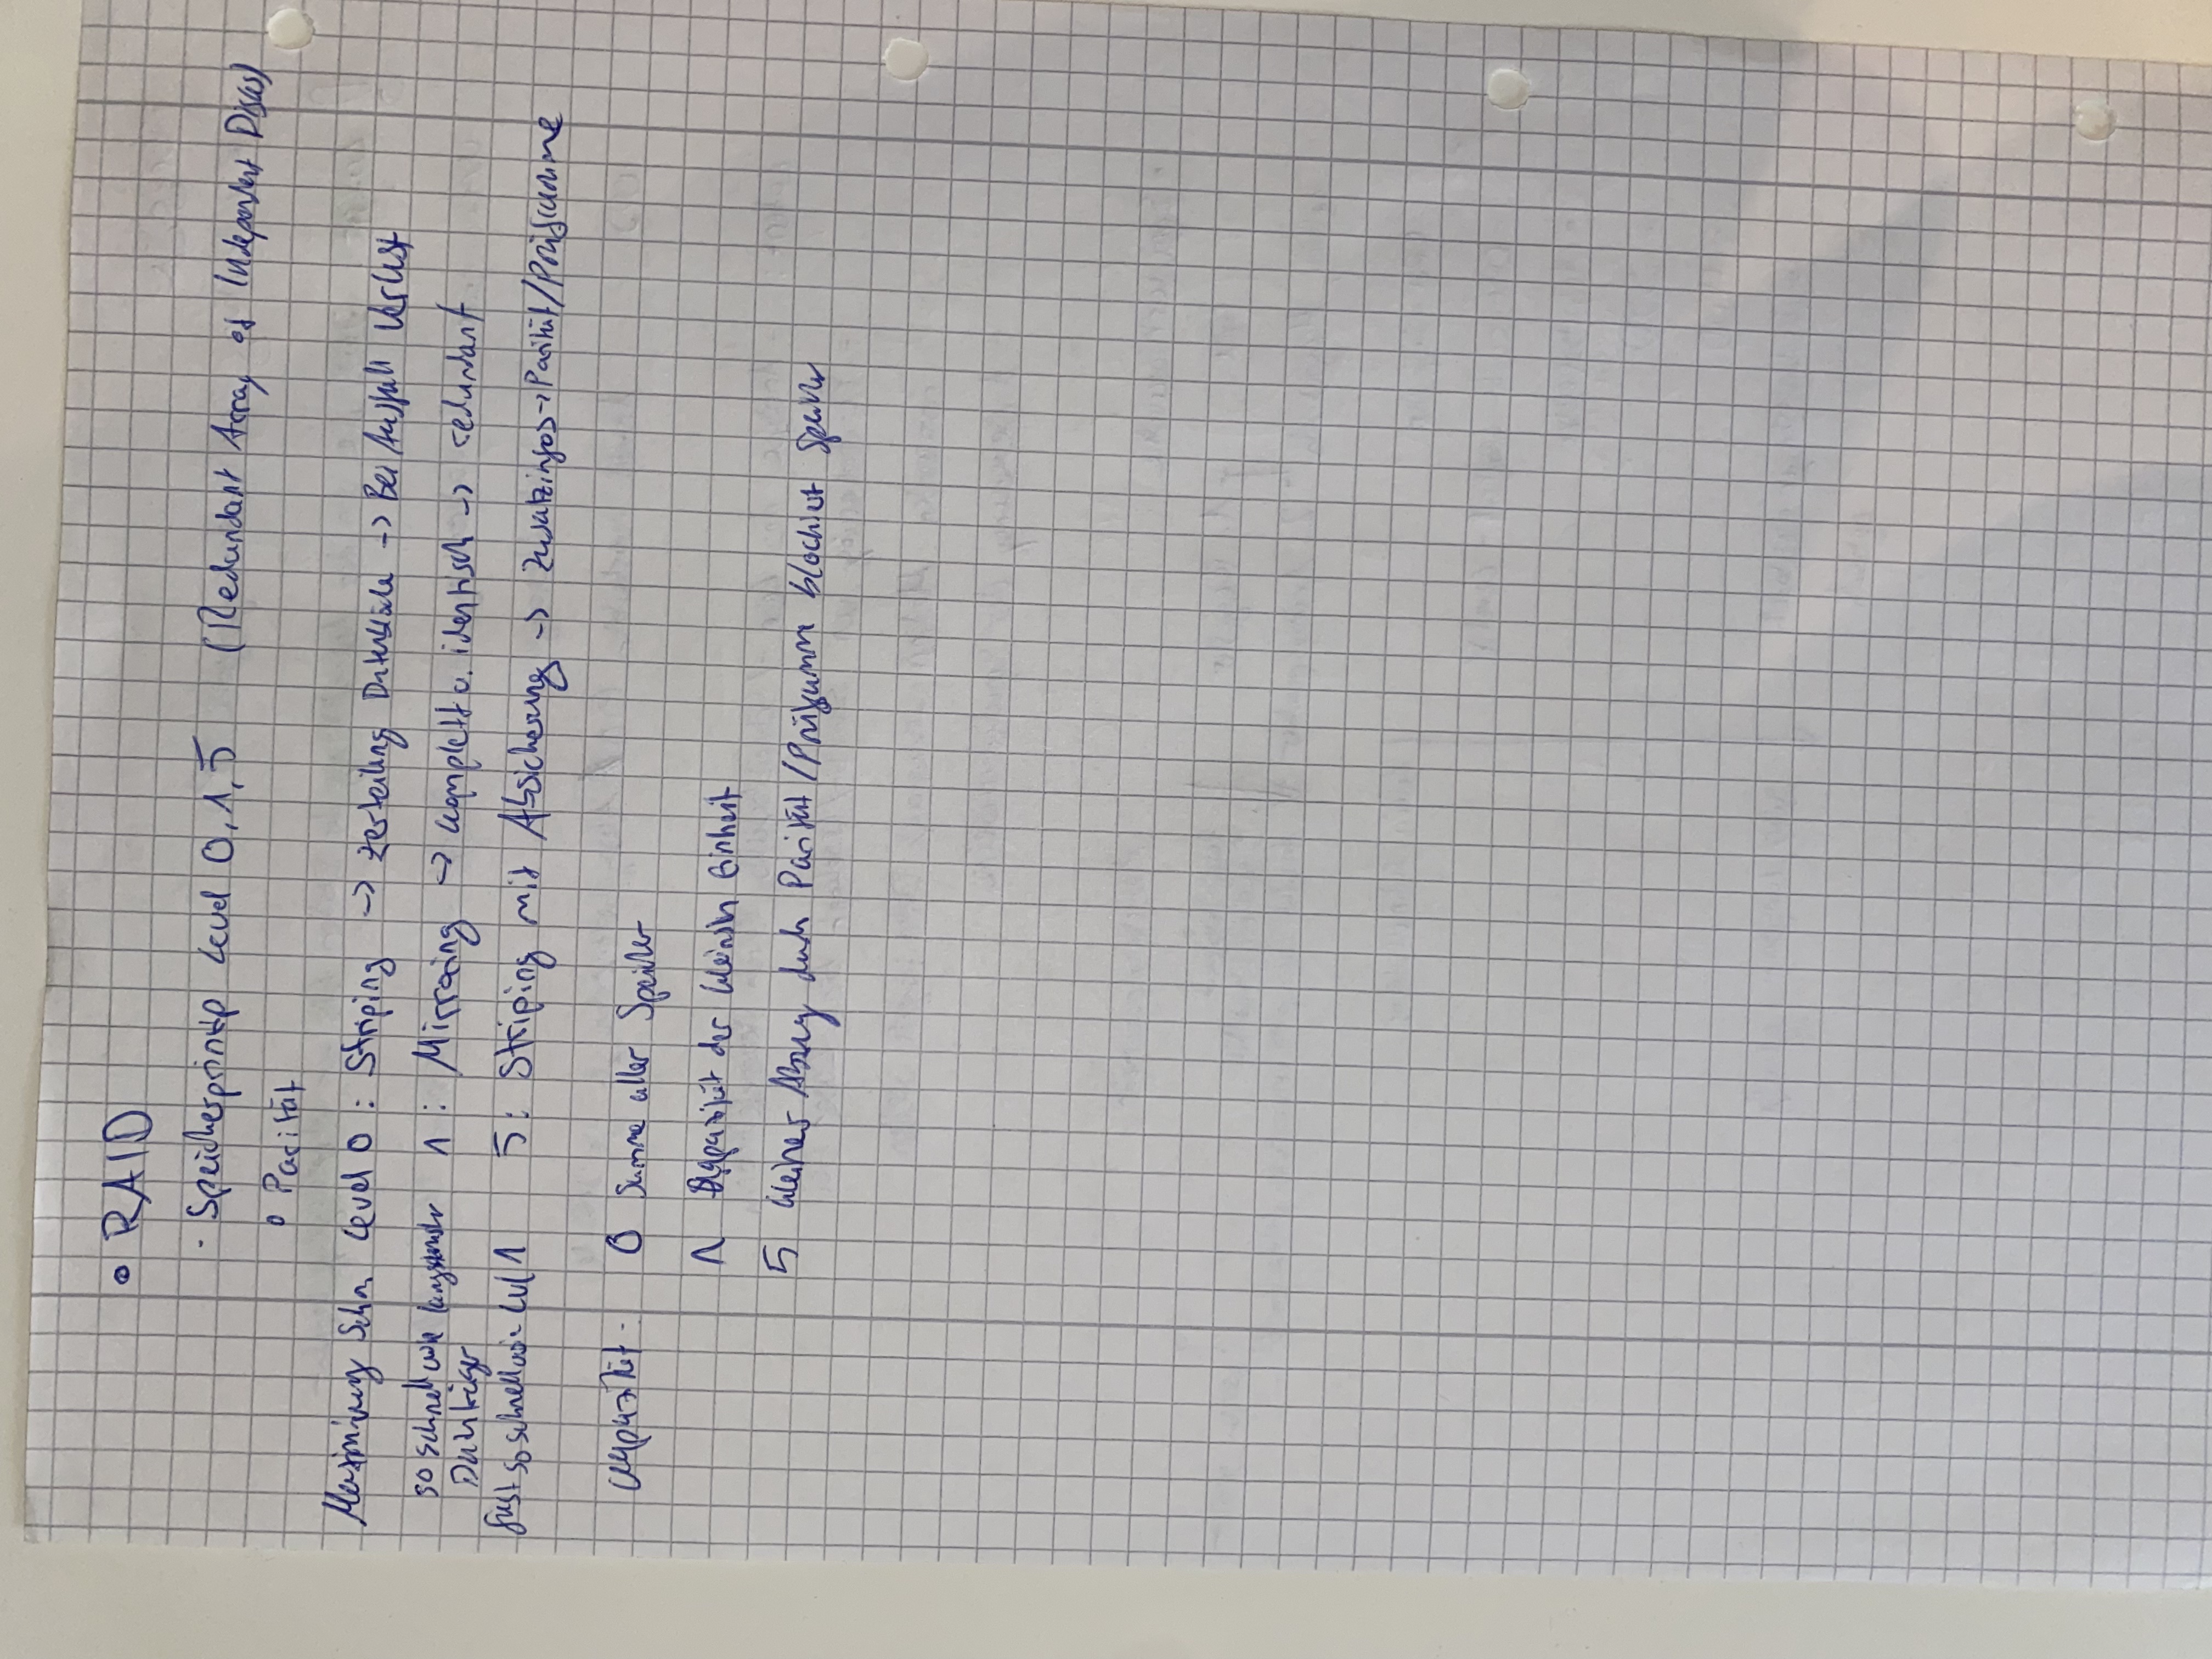 • RAID
· Speicherprinzip Level 0, 1, 5 (Redundant Array of Independent Disks)
o Parität
Level 0: Striping -> zerteilung Dateteile -> Bei Ausfall Verlust
so schnell wie langsamster 1: Mirroring -> komplett u. identisch -> redundant
Datenträger
fast so schnell wie Lvl 1 5: Striping mit Absicherung -> Zusatzinfos -> Parität/Prüfsumme
Kapazität. 0 Summe aller Speicher
1 Kapazität der kleinsten Einheit
5 kleiner Abzug durch Parität/Prüfsumm blockiert Speicher